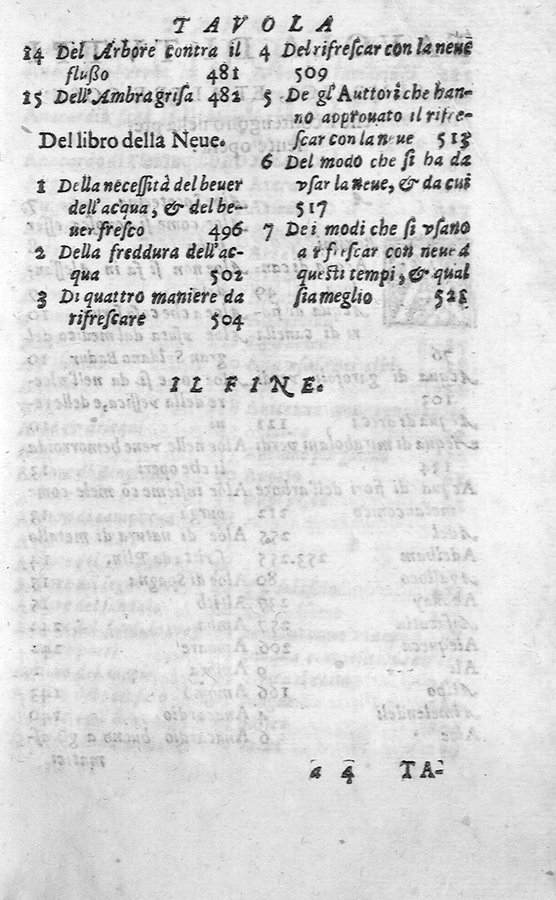 TAVOLA
14 Del Arbore contra il
flußo 481
15 Dell'Ambragrisa 482
Del libro della Neue.
1 Della necessità del beuer
dell'acqua, & del be-
uer fresco 496
2 Della freddura dell'ac-
qua 502
3 Di quattro maniere da
rifrescare 504
4 Del rifrescar con la neue
509
5 De gl'Auttori che han-
no approuato il rifre-
scar con la neue 513
6 Del modo che si ha da
vsar la neue, & da cui
517
7 Dei modi che si vsano
a rifrescar con neue a
questi tempi, & qual
sia meglio
IL FINE.
a 4 TA-